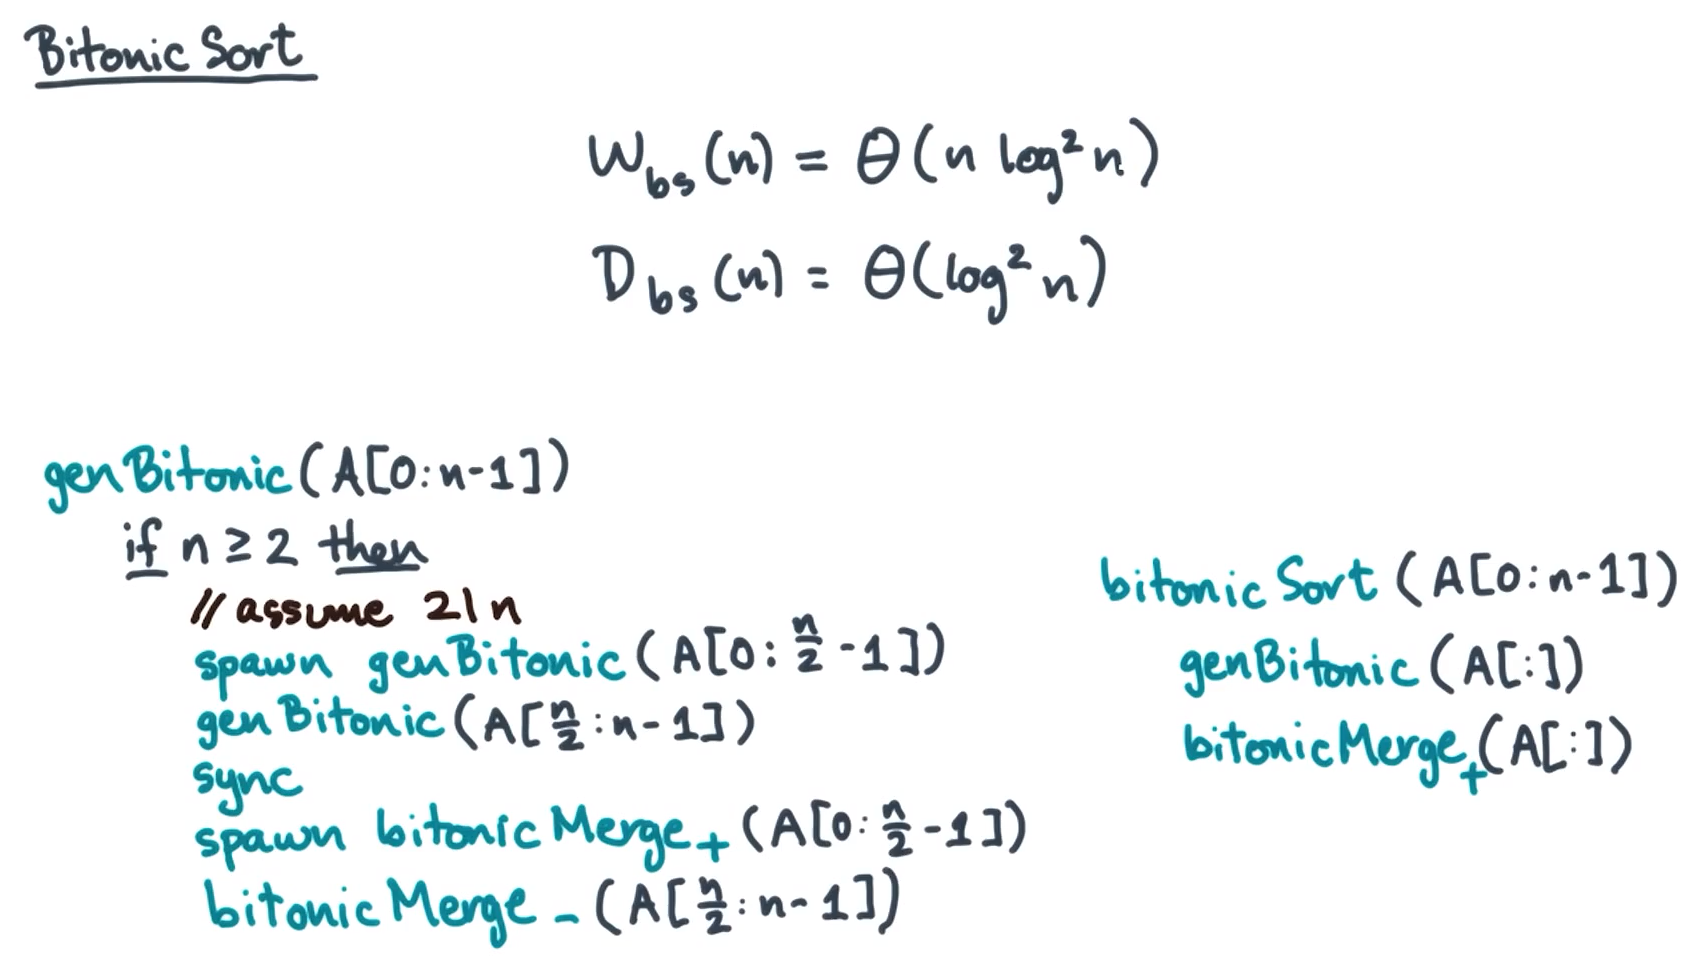 Bitonic Sort
W_bs (n) = Θ(n log² n)
D_bs (n) = Θ(log² n)
genBitonic (A[0:n-1])
if n ≥ 2 then
// assume 2|n
spawn genBitonic (A[0: n/2 -1])
genBitonic (A[n/2 :n-1])
sync
spawn bitonicMerge+ (A[0: n/2 -1])
bitonicMerge- (A[n/2 :n-1])
bitonicSort (A[0:n-1])
genBitonic (A[:])
bitonicMerge+ (A[:])